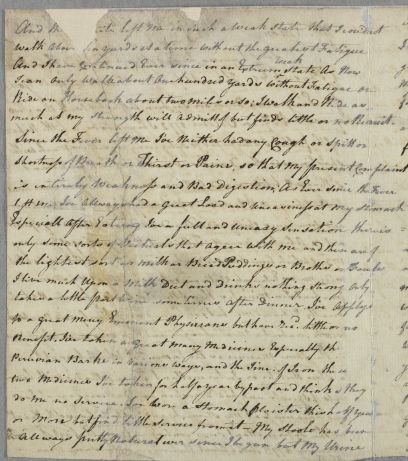 And the left me in such a weak state that I could not
walk above yards at a time without the greatest Fatigue
And I have continued Ever since in an Extreem weak State As Now
I can Only walk about One hundred Yards without Fatigue or
Ride on Horseback about two miles or so, I walk and Ride as
much as my strength will admitt of but find little or no Recruit.
Since the Fever left me Ive Neither had any Cough or Spitt or
Shortness of Breath or Thirst or Paine, so that My present Complaint
is entirely Weakness and Bad digestion, As Ever since the Fever
left me Ive Allways had a Great Load and uneasiness at My Stomach
Especially After Eating Ive a full and uneasy Sensation theres
only some sorts of that agree with me and them are of
the lightest sort as milk or Bread Puddings or Broths or Fowles
I live much Upon a Milk Diet and drinke nothing strong Only
take a little port wine sometimes after dinner. Ive Applyed
to a great many Emminent Physicians but have little or no
Benefit. Ive taken a great many Medicines Especially the
Peruvian Barke in various ways, and the Tinc. of Iron these
two Medicines Ive taken for half a year by past and think they
do me no service. Ive Wore a Stomach Plaister this half year
or More but find little service from it - My Stools has been
Allways pritty Natural ever since I begun but My Urine